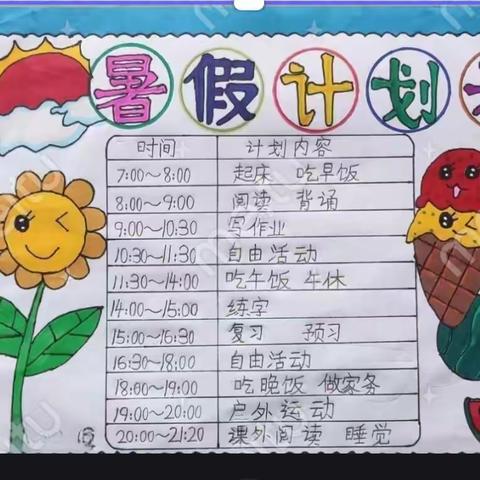 暑假计划
时间 计划内容
7:00～8:00 起床 吃早饭
8:00～9:00 阅读 背诵
9:00～10:30 写作业
10:30～11:30 自由活动
11:30～14:00 吃午饭 午休
14:00～15:00 练字
15:00～16:30 复习 预习
16:30～18:00 自由活动
18:00～19:00 吃晚饭 做家务
19:00～20:00 户外运动
20:00～21:20 课外阅读 睡觉